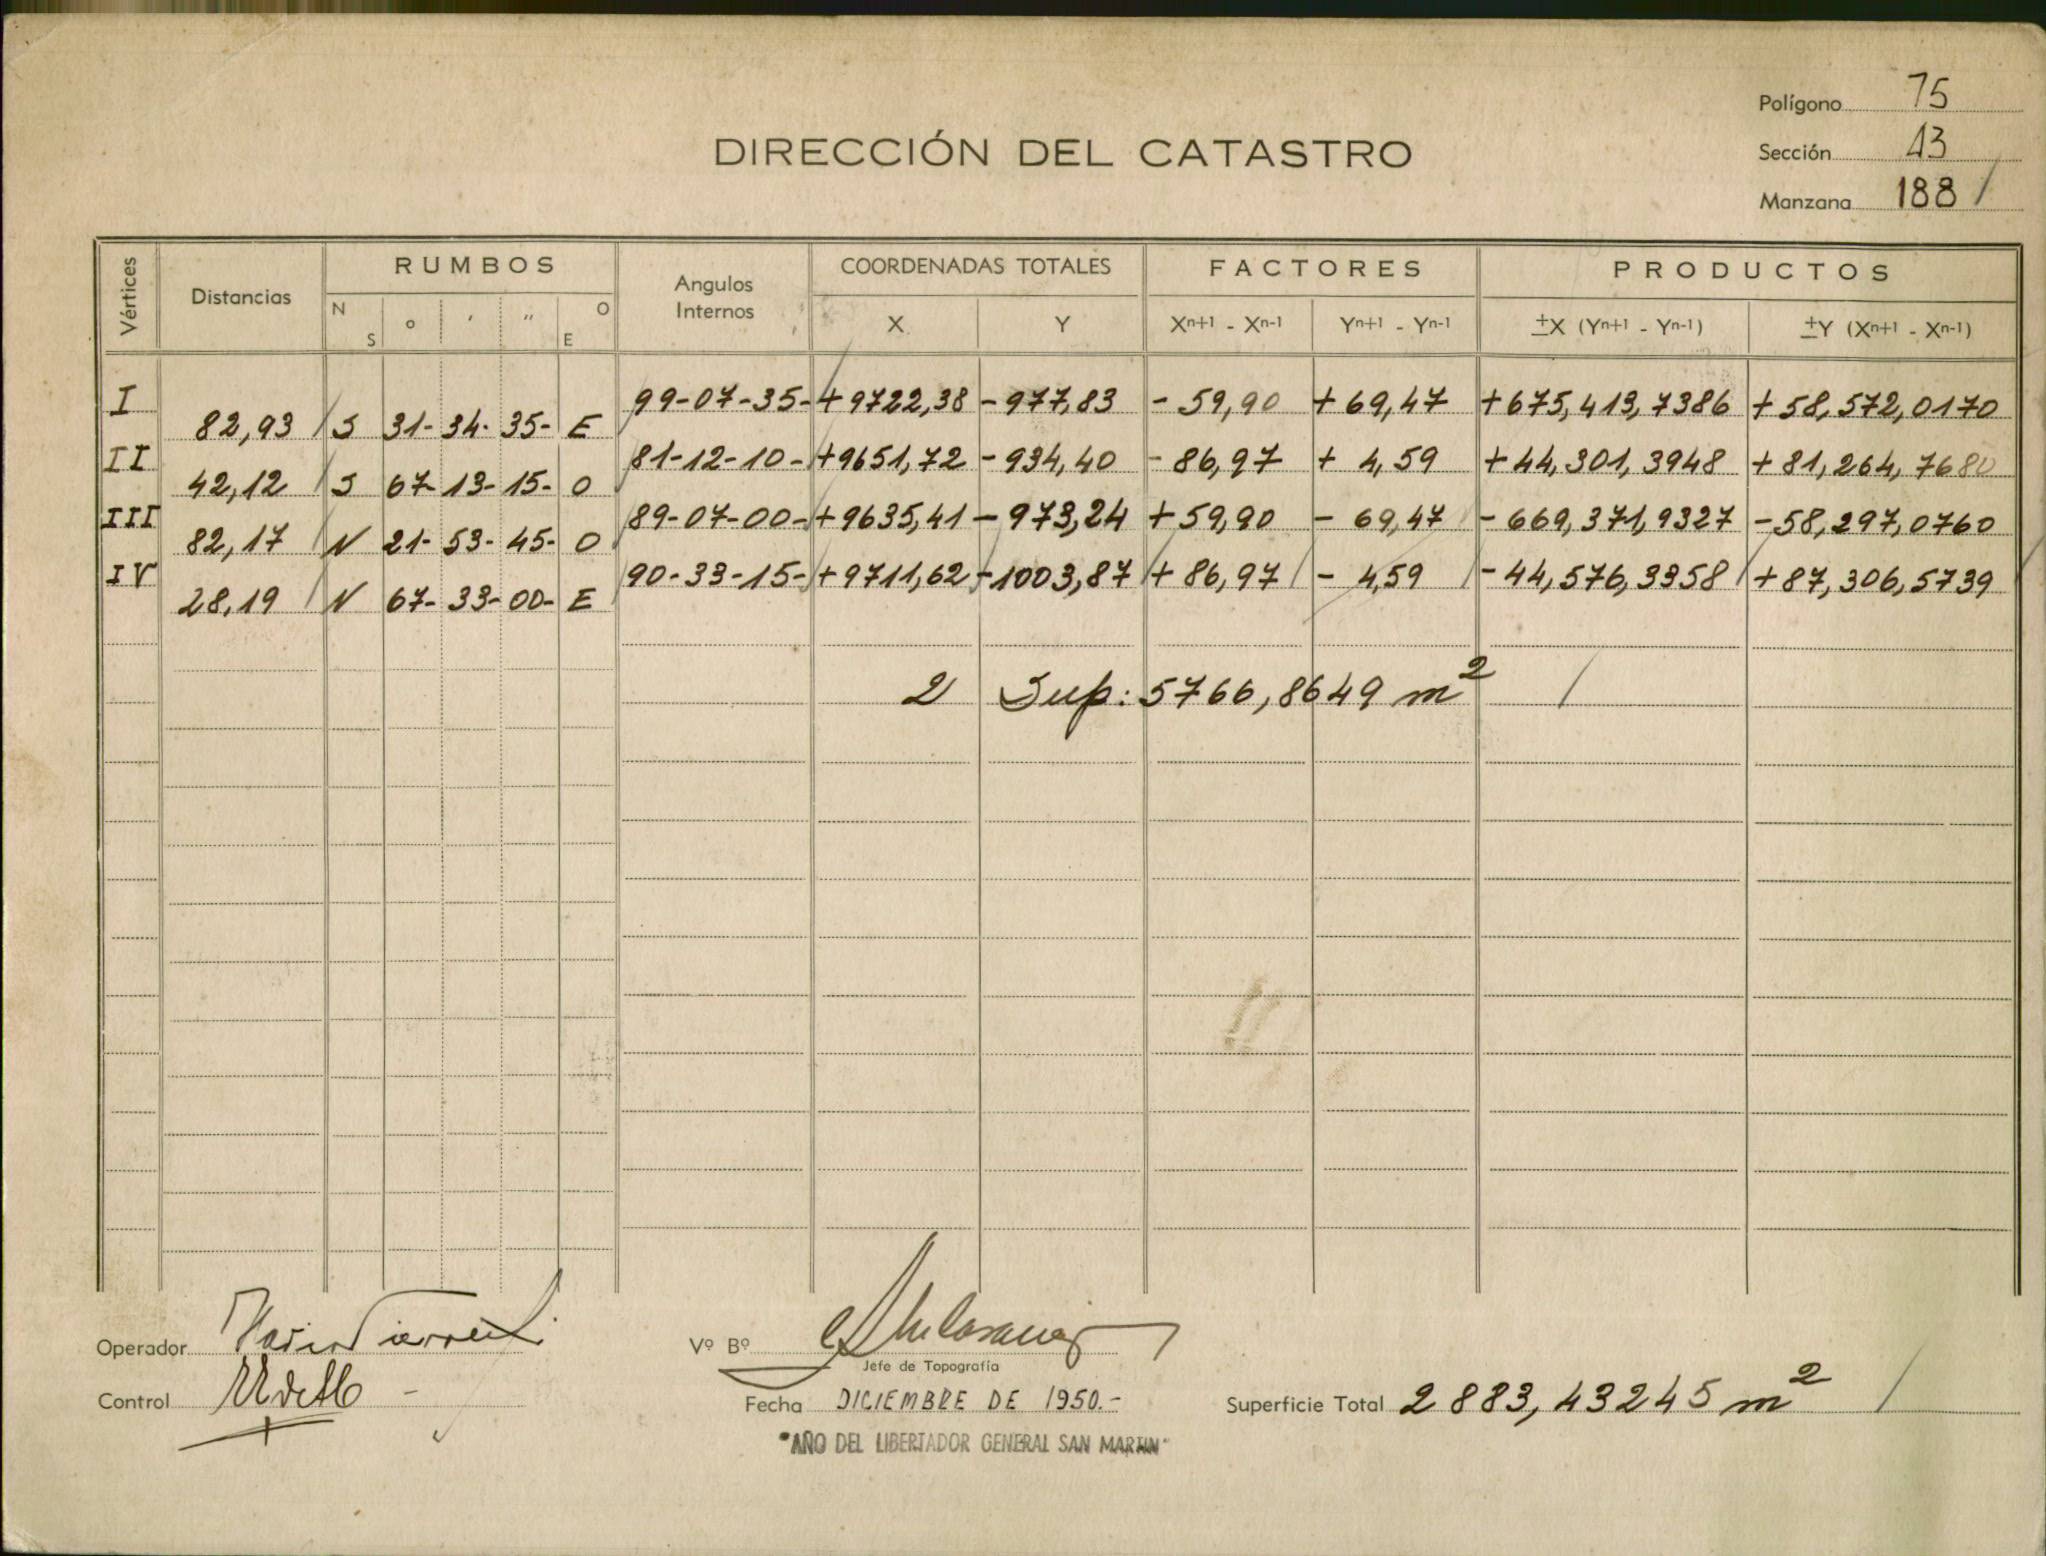 Polígono 75
DIRECCIÓN DEL CATASTRO
Sección 13
Manzana 188 /
Vértices Distancias RUMBOS Angulos Internos COORDENADAS TOTALES FACTORES PRODUCTOS
N S ° ' '' O E X Y Xn+1 - Xn-1 Yn+1 - Yn-1 ±X (Yn+1 - Yn-1) ±Y (Xn+1 - Xn-1)
I 99-07-35- +9722,38 -977,83 -59,90 +69,47 +675,413,7386 +58,572,0170
82,93 S 31- 34- 35- E
II 81-12-10- +9651,72 -934,40 -86,97 + 4,59 +44,301,3948 +81,264,7680
42,12 S 67- 13- 15- O
III 89-07-00- +9635,41 -973,24 +59,90 - 69,47 -669,371,9327 -58,297,0760
82,17 N 21- 53- 45- O
IV 90-33-15- +9711,62 -1003,87 +86,97 - 4,59 -44,576,3358 +87,306,5739
28,19 N 67- 33- 00- E
2 Sup: 5766,8649 m2 /
Operador
Vº Bº
Jefe de Topografía
Control
Fecha DICIEMBRE DE 1950.-
Superficie Total 2883,43245 m2 /
"AÑO DEL LIBERTADOR GENERAL SAN MARTIN"